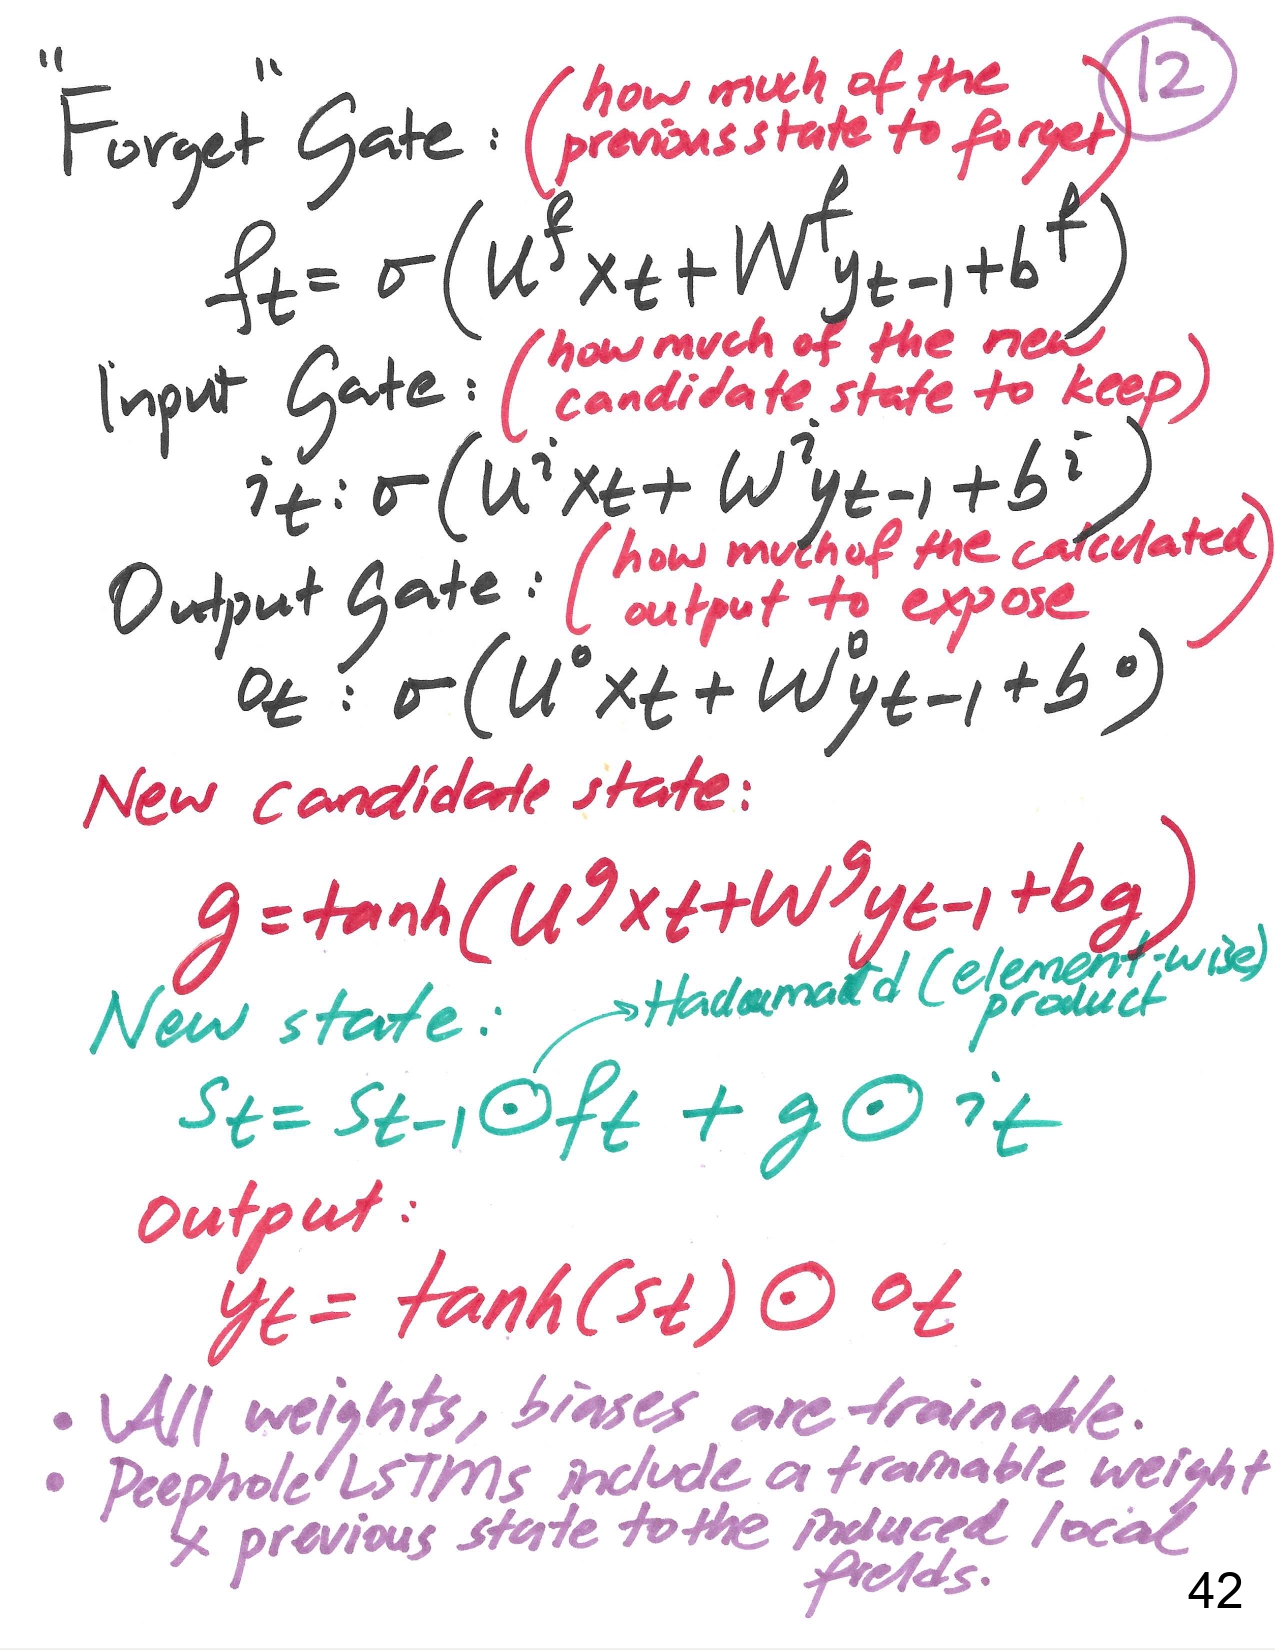 12
"Forget" Gate: (how much of the
previous state to forget)
f_t = σ(U^f x_t + W^f y_{t-1} + b^f)
Input Gate: (how much of the new
candidate state to keep)
i_t: σ(U^i x_t + W^i y_{t-1} + b^i)
Output Gate: (how much of the calculated
output to expose)
o_t: σ(U^o x_t + W^o y_{t-1} + b^o)
New candidate state:
g = tanh(U^g x_t + W^g y_{t-1} + b_g)
Hadamard (element-wise)
product
New state:
s_t = s_{t-1} ⊙ f_t + g ⊙ i_t
Output:
y_t = tanh(s_t) ⊙ o_t
• All weights, biases are trainable.
• Peephole LSTMs include a trainable weight
x previous state to the induced local
fields.
42